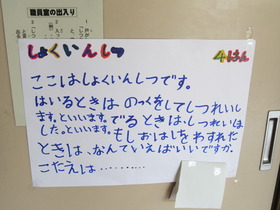 職員室の出入り
しょくいんしつ 4はん
ここはしょくいんしつです。
はいるときは のっくをしてしつれいし
ます。といいます。でるときは、しつれいしま
した。といいます。もしおはしをわすれた
ときは、なんていえばいいですか。
こたえは‥‥‥‥‥